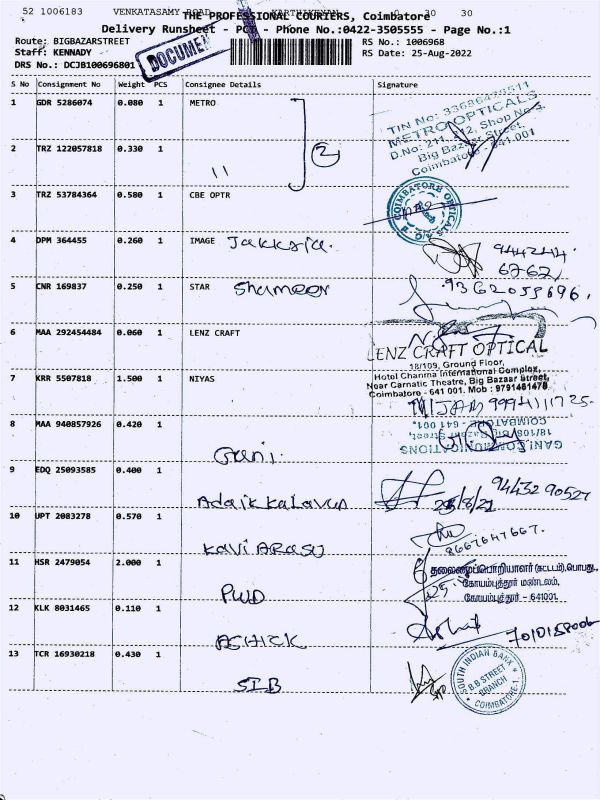 52 1006183 VENKATASAMY ROAD KARTHIKEYAN 0 30 30
THE PROFESSIONAL COURIERS, Coimbatore
Delivery Runsheet - POD - Phone No.:0422-3505555 - Page No.:1
Route: BIGBAZARSTREET RS No.: 1006968
Staff: KENNADY RS Date: 25-Aug-2022
DRS No.: DCJB100696801
DOCUMEN
S No Consignment No Weight PCS Consignee Details Signature
1 GDR 5286074 0.080 1 METRO
TIN No: 33686473511
METRO OPTICALS
D.No: 211, 212, Shop No 3,
Big Bazaar Street,
Coimbatore - 641 001
2 TRZ 122057818 0.330 1 " 2
3 TRZ 53784364 0.580 1 CBE OPTR
COIMBATORE OPTICALS
4 DPM 364455 0.260 1 IMAGE Jakkaria. 9442414
6762
5 CNR 169837 0.250 1 STAR Shameer 9362055696.
6 MAA 292454484 0.060 1 LENZ CRAFT
LENZ CRAFT OPTICAL
18/109, Ground Floor,
Hotel Channma International Complex,
Near Carnatic Theatre, Big Bazaar Street,
Coimbatore - 641 001. Mob : 9791461478
7 KRR 5507818 1.500 1 NIYAS
NIJAM 9994111725.
8 MAA 940857926 0.420 1 Gani.
GANI COMMUNICATIONS
18/108, Big Bazaar Street,
COIMBATORE - 641 001.
9 EDQ 25093585 0.400 1 Adaikkalavan 94432 90527
10 UPT 2083278 0.570 1 KAVI ARASU 8667647667.
11 HSR 2479054 2.000 1 PWD
தலைமைப்பொறியாளர் (கட்டடம்),பொபது..
கோயம்புத்தூர் மண்டலம்,
கோயம்புத்தூர் - 641001.
12 KLK 8031465 0.110 1 ASHICK
13 TCR 16930218 0.430 1 SIB
SOUTH INDIAN BANK
B.B STREET
BRANCH
COIMBATORE